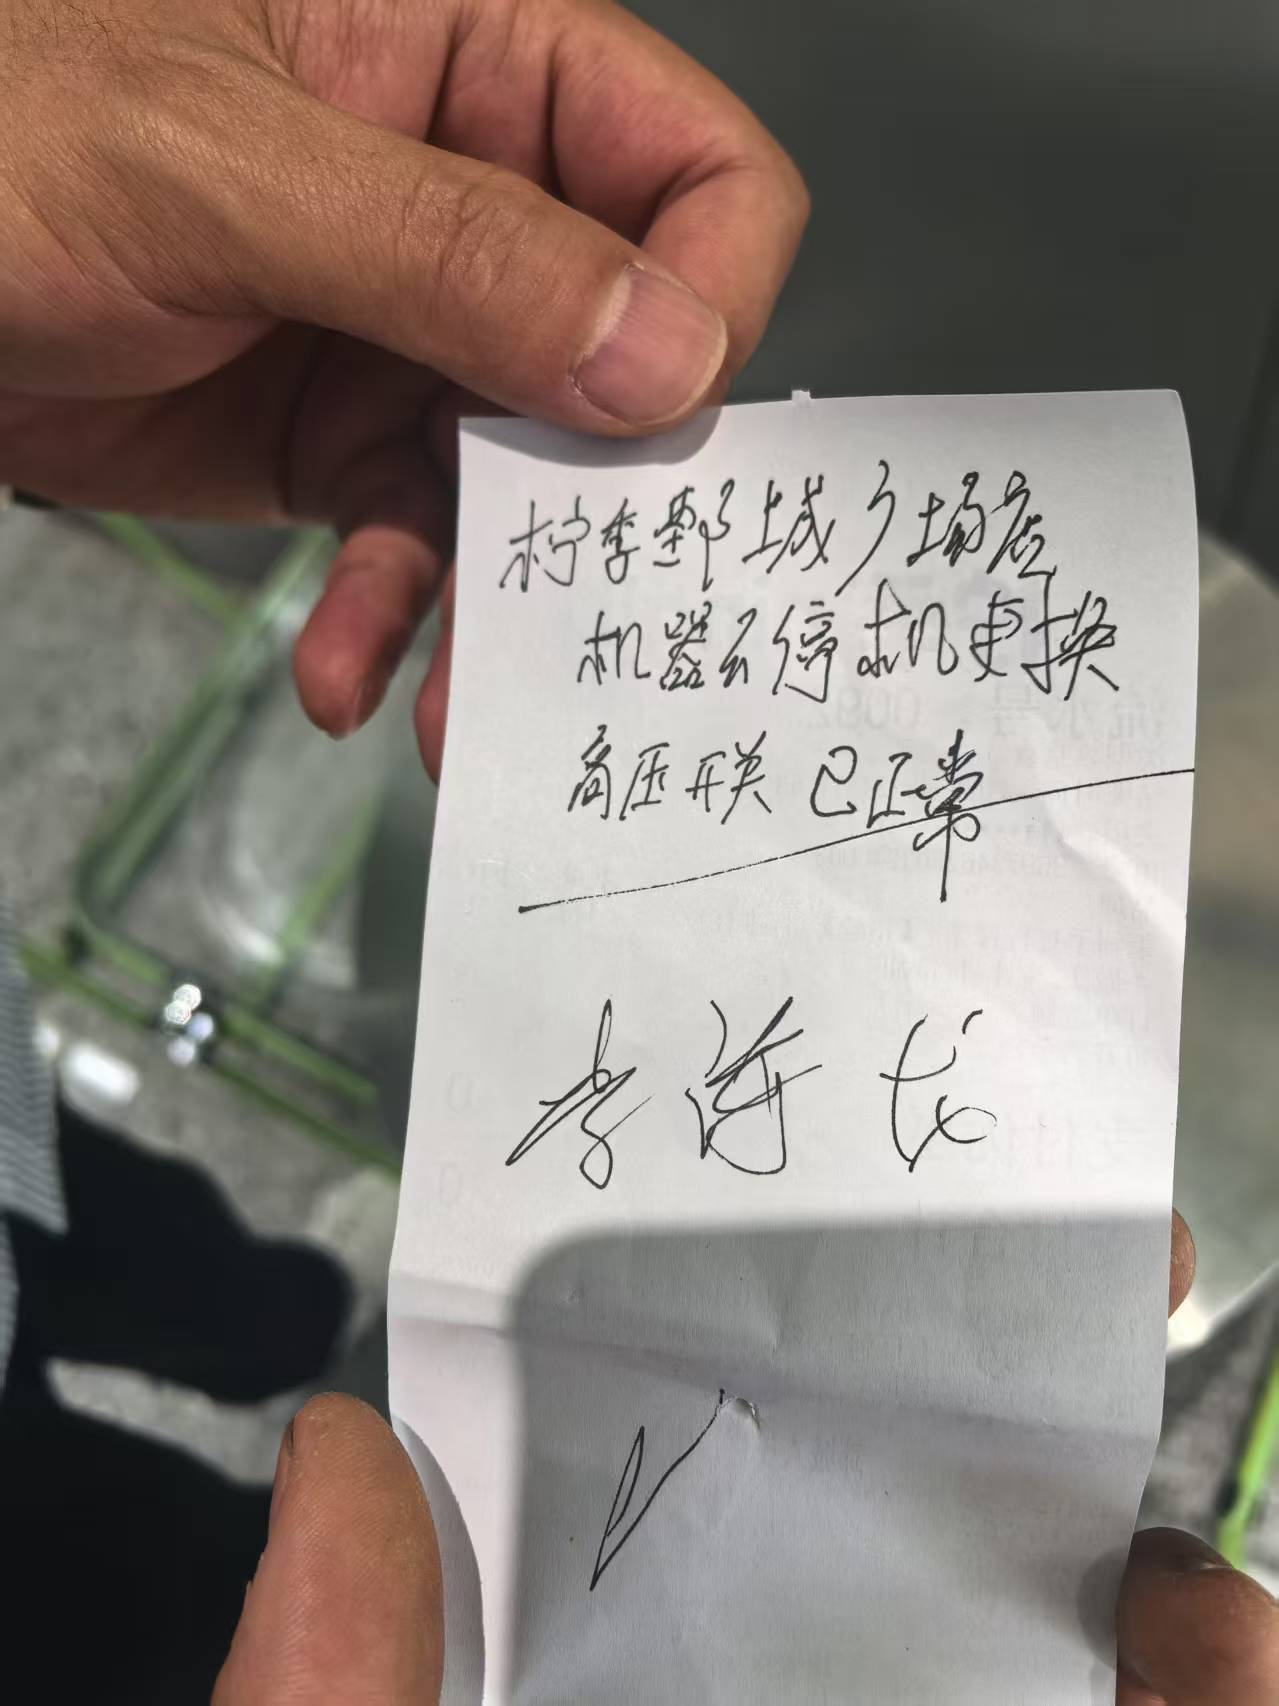 柠季鄄城广场店
机器不停机更换
高压开关 已正常
李海龙